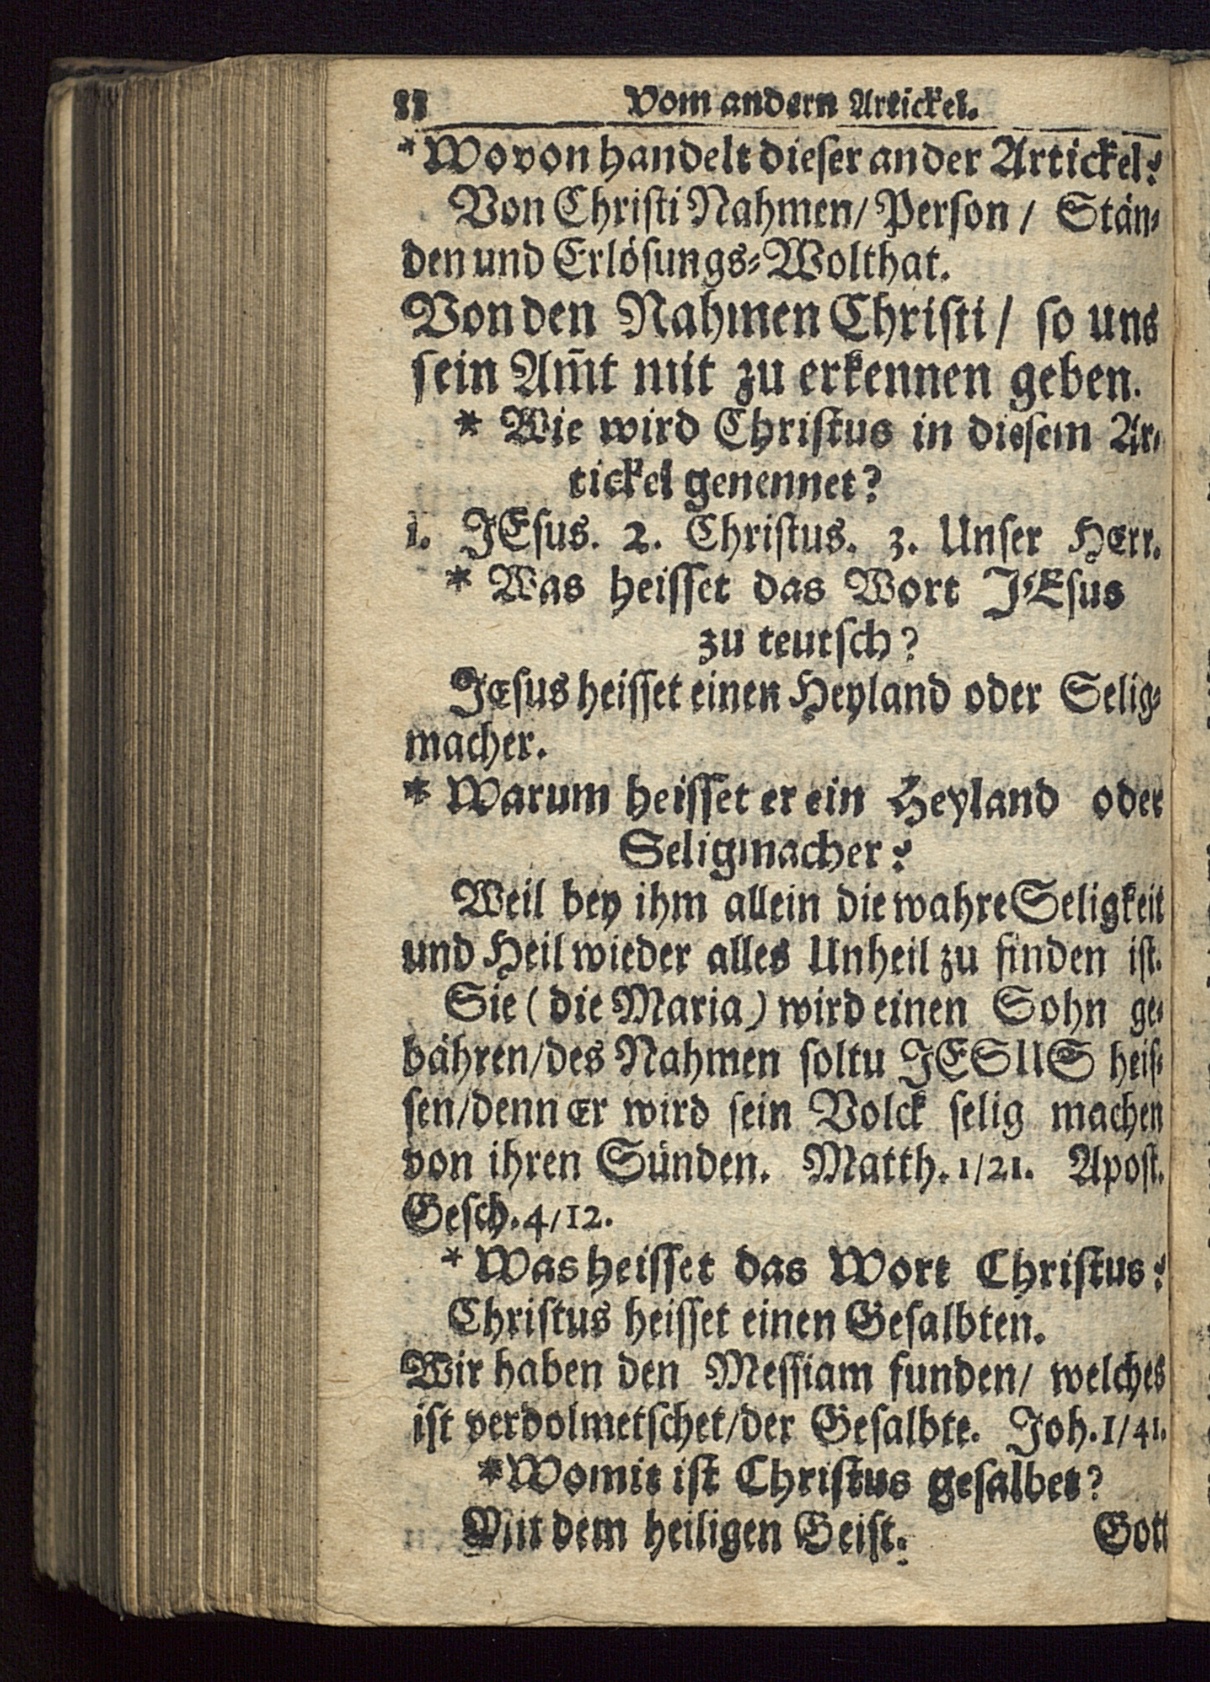 88 Vom andern Artickel.
* Wovon handelt dieser ander Artickel?
Von Christi Nahmen/ Person / Stän-
den und Erlösungs-Wolthat.
Von den Nahmen Christi/ so uns
sein Am̃t mit zu erkennen geben.
* Wie wird Christus in diesem Ar-
tickel genennet?
1. JEsus. 2. Christus. 3. Unser HErr.
* Was heisset das Wort JEsus
zu teutsch?
JEsus heisset einen Heyland oder Selig-
macher.
* Warum heisset er ein Heyland oder
Seligmacher?
Weil bey ihm allein die wahre Seligkeit
und Heil wieder alles Unheil zu finden ist.
Sie ( die Maria) wird einen Sohn ge-
bähren/des Nahmen soltu JESUS heis-
sen/denn Er wird sein Volck selig machen
von ihren Sünden. Matth. 1/21. Apost.
Gesch. 4/12.
* Was heisset das Wort Christus?
Christus heisset einen Gesalbten.
Wir haben den Messiam funden/ welches
ist verdolmetschet/der Gesalbte. Joh. 1/41.
* Womit ist Christus gesalbet?
Mit dem heiligen Geist.
Gott